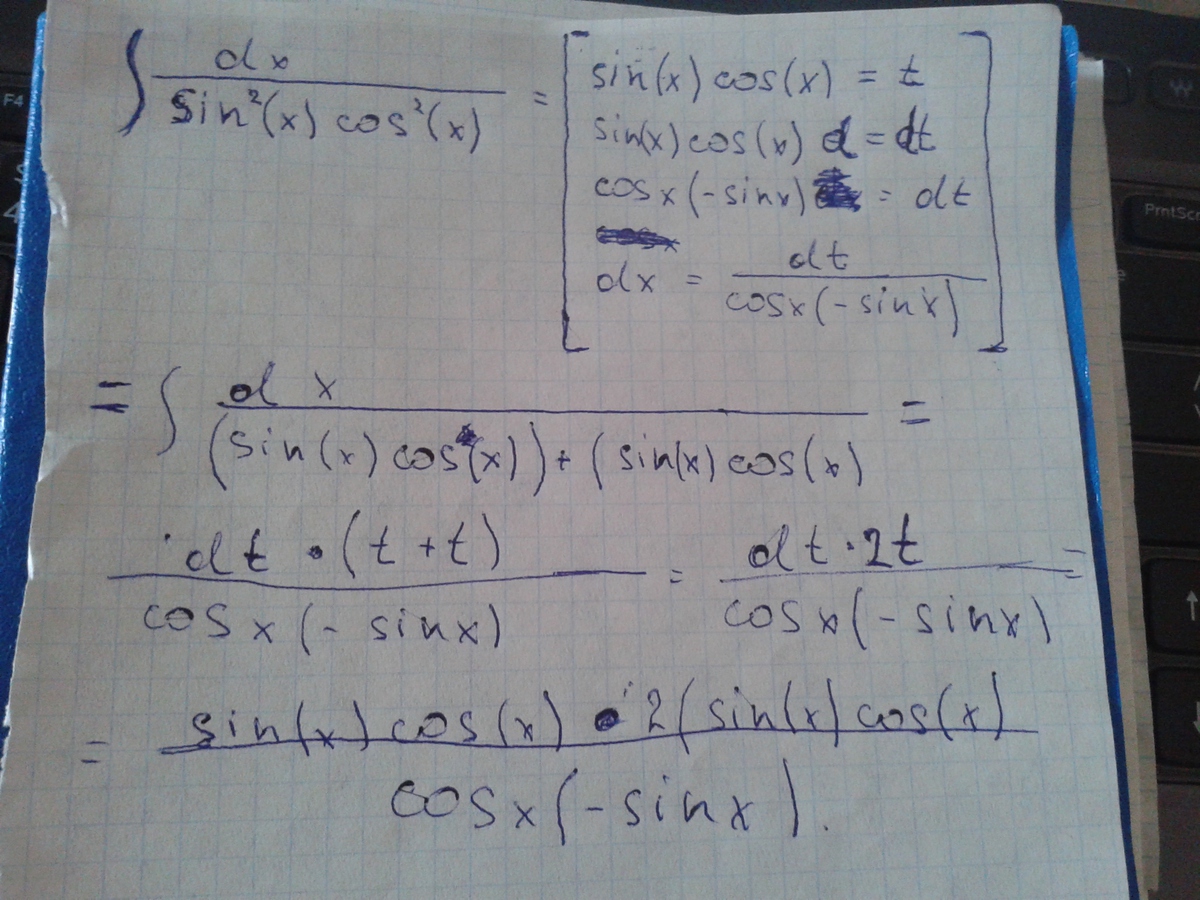 ∫ dx / sin²(x) cos²(x) = [ sin(x) cos(x) = t
sin(x) cos(x) d = dt
cosx(-sinx) = dt
dx = dt / cosx(-sinx) ]
= ∫ dx / (sin(x) cos(x)) + (sin(x) cos(x) =
dt · (t + t) / cosx(- sinx) = dt · 2t / cosx(- sinx) =
= sin(x) cos(x) · 2(sin(x) cos(x) / cosx(- sinx).
F4
PrntSc